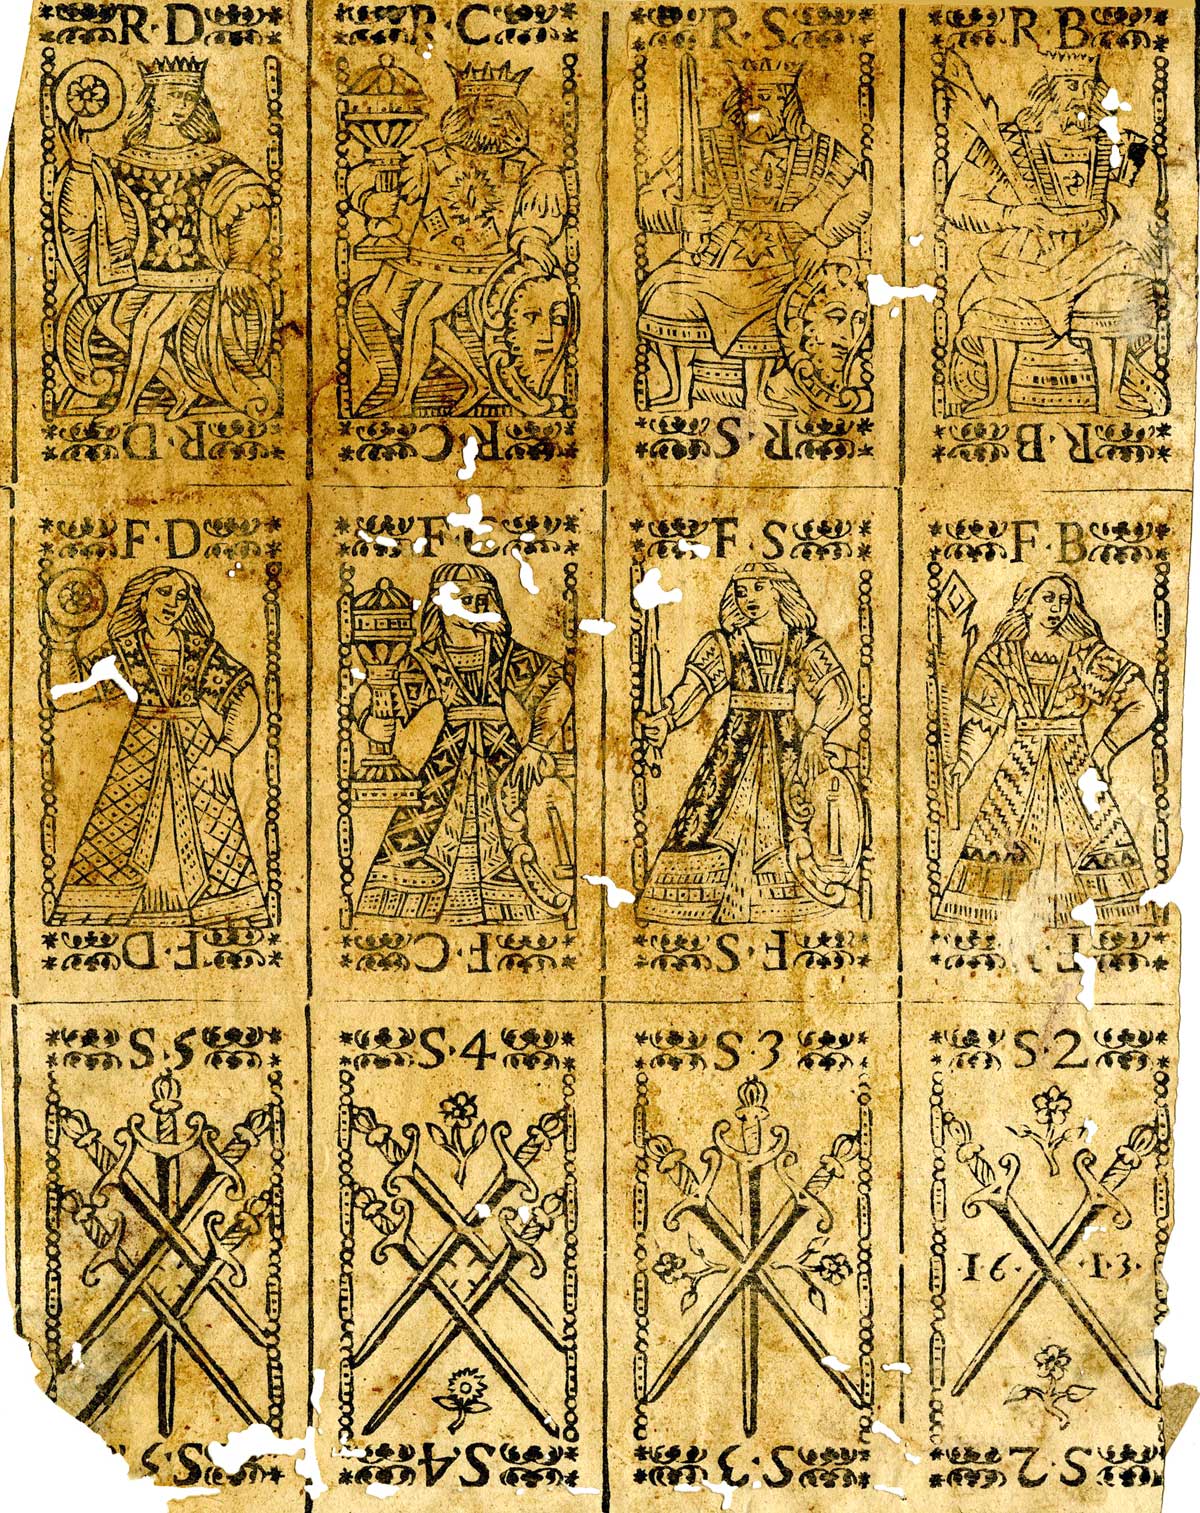 R·D R·C R·S R·B
R·D R·C R·S R·B
F·D F·C F·S F·B
F·D F·C F·S F
S·5 S·4 S·3 S·2
·16· ·13·
S·5 S·4 S·3 S·2